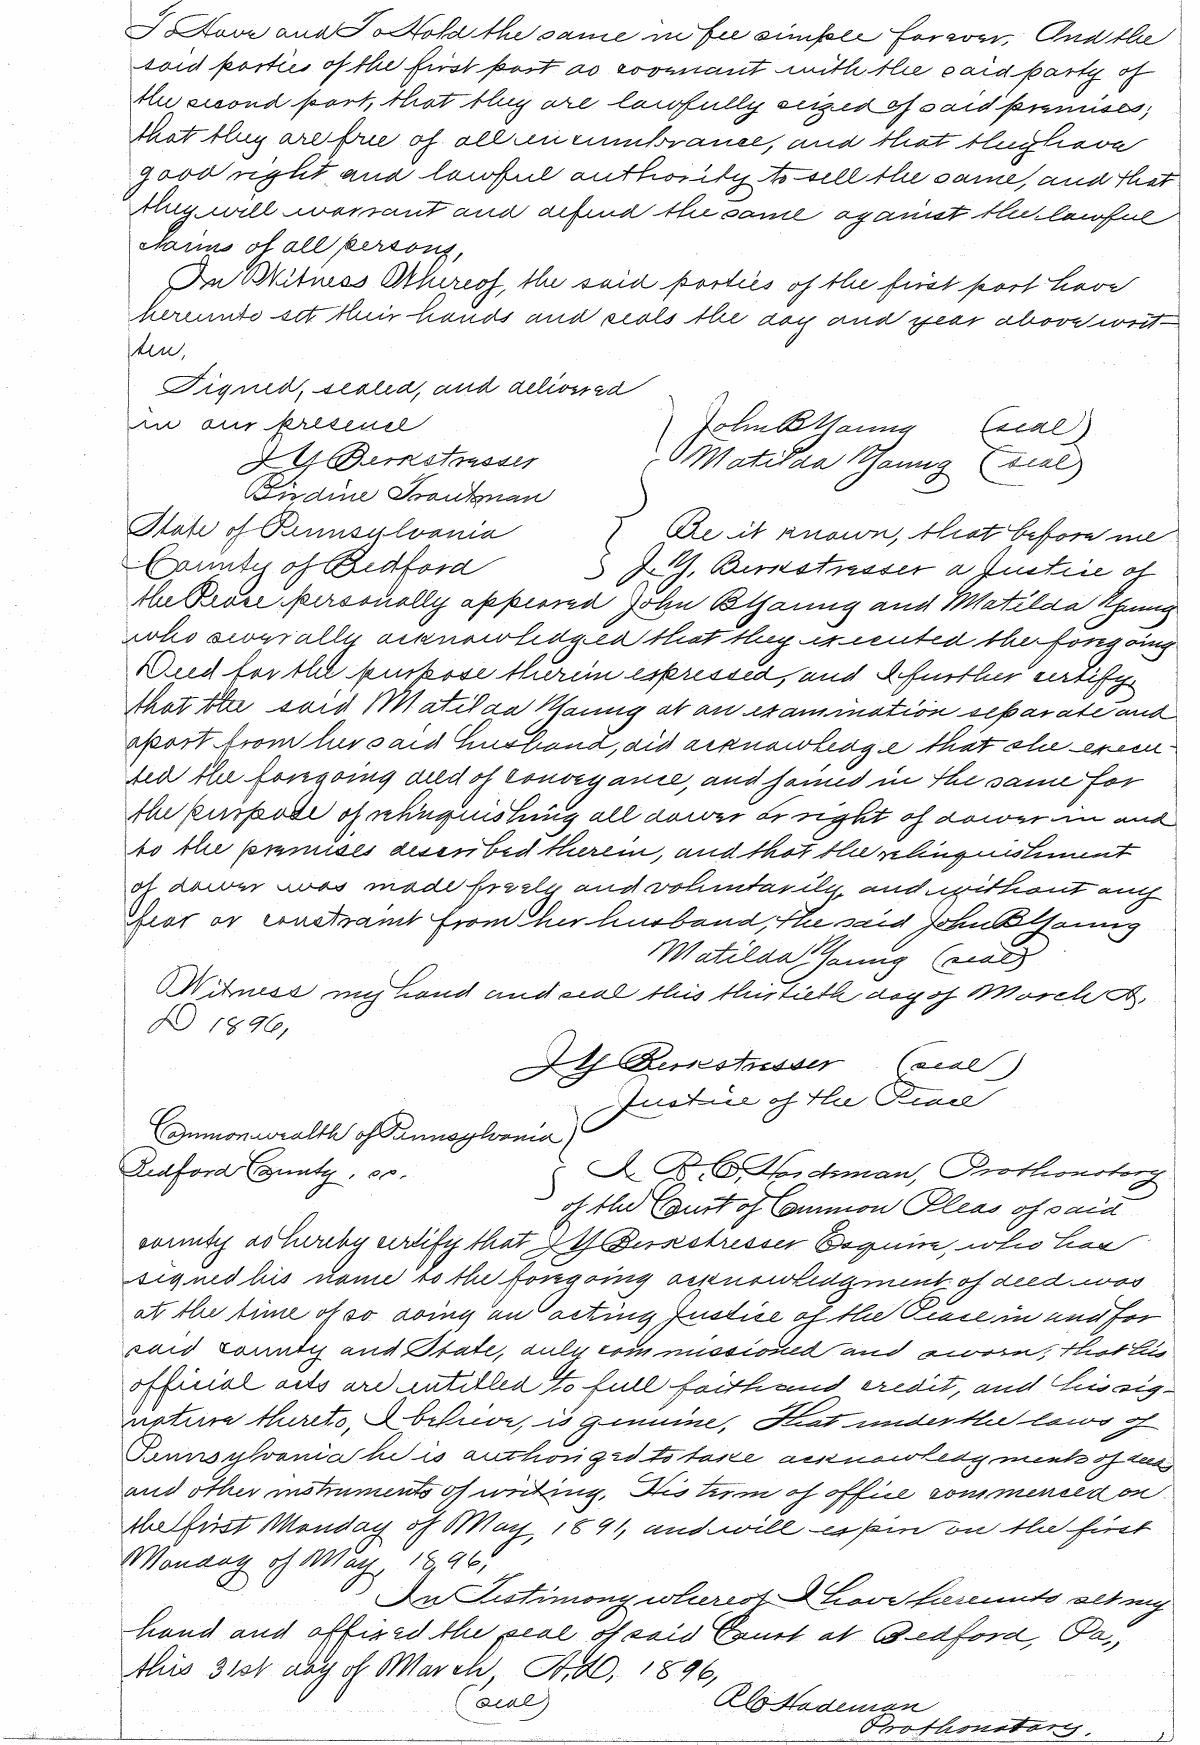 To Have and To Hold the same in fee simple forever. And the
said parties of the first part do covenant with the said party of
the second part, that they are lawfully seized of said premises,
that they are free of all encumbrance, and that they have
good right and lawful authority to sell the same, and that
they will warrant and defend the same against the lawful
claims of all persons,
In Witness Whereof, the said parties of the first part have
hereunto set their hands and seals the day and year above writ-
ten,
Signed, sealed, and delivered
in our presence
John B Young (seal)
J Y Berkstresser
Matilda Young (seal)
Birdine Troutman
State of Pennsylvania
County of Bedford
Be it known, that before me
J. Y. Berkstresser a Justice of
the Peace personally appeared John B Young and Matilda Young
who severally acknowledged that they executed the foregoing
Deed for the purpose therein expressed, and I further certify
that the said Matilda Young at an examination separate and
apart from her said husband, did acknowledge that she execu-
ted the foregoing deed of conveyance, and joined in the same for
the purpose of relinquishing all dower or right of dower in and
to the premises described therein, and that the relinquishment
of dower was made freely and voluntarily and without any
fear or constraint from her husband, the said John B Young
Matilda Young (seal)
Witness my hand and seal this thirtieth day of March A.
D 1896,
J Y Berkstresser (seal)
Justice of the Peace
Commonwealth of Pennsylvania
Bedford County, ss.
I R. C. Hardeman, Prothonotary
of the Court of Common Pleas of said
county do hereby certify that J Y Berkstresser Esquire, who has
signed his name to the foregoing acknowledgment of deed was
at the time of so doing an acting Justice of the Peace in and for
said county and State, duly commissioned and sworn; that his
official acts are entitled to full faith and credit, and his sig-
nature thereto, I believe, is genuine, That under the laws of
Pennsylvania he is authorized to take acknowledgments of deeds
and other instruments of writing. His term of office commenced on
the first Monday of May, 1891, and will expire on the first
Monday of May, 1896,
In Testimony whereof I have hereunto set my
hand and affixed the seal of said Court at Bedford, Pa.,
this 31st day of March, A.D. 1896,
(seal)
R C Hademan
Prothonotary.